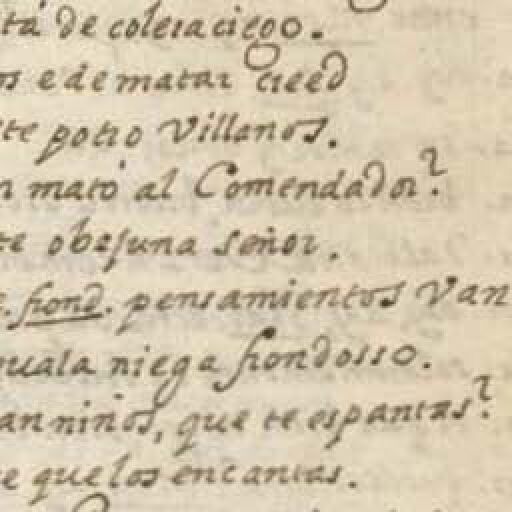 ta de colera ciego.
os e de matar creed
te potro Villanos.
n mató al Comendador?
te obejuna Señor.
frond. pensamientos Van
quala niega frondosso.
an niños, que te espantas?
e que los encantas.